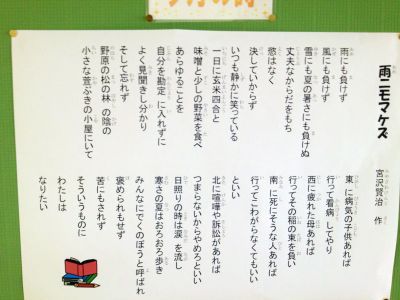 月の詩
雨ニモマケズ
宮沢賢治 作
雨にも負けず
風にも負けず
雪にも夏の暑さにも負けぬ
丈夫なからだをもち
慾はなく
決していからず
いつも静かに笑っている
一日に玄米四合と
味噌と少しの野菜を食べ
あらゆることを
自分を勘定に入れずに
よく見聞きし分かり
そして忘れず
野原の松の林の陰の
小さな萱ぶきの小屋にいて
東に病気の子供あれば
行って看病してやり
西に疲れた母あれば
行ってその稲の束を負い
南に死にそうな人あれば
行ってこわがらなくてもいい
といい
北に喧嘩や訴訟があれば
つまらないからやめろといい
日照りの時は涙を流し
寒さの夏はおろおろ歩き
みんなにでくのぼうと呼ばれ
褒められもせず
苦にもされず
そういうものに
わたしは
なりたい